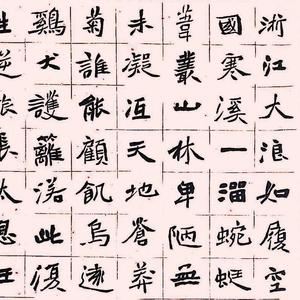 浙江大浪如履空
國寒溪一溜蜿蜒
葦叢山林卑陋無
未凝沍天地蒼莽
菊誰能顧飢烏遠
鷄犬護籬落此復